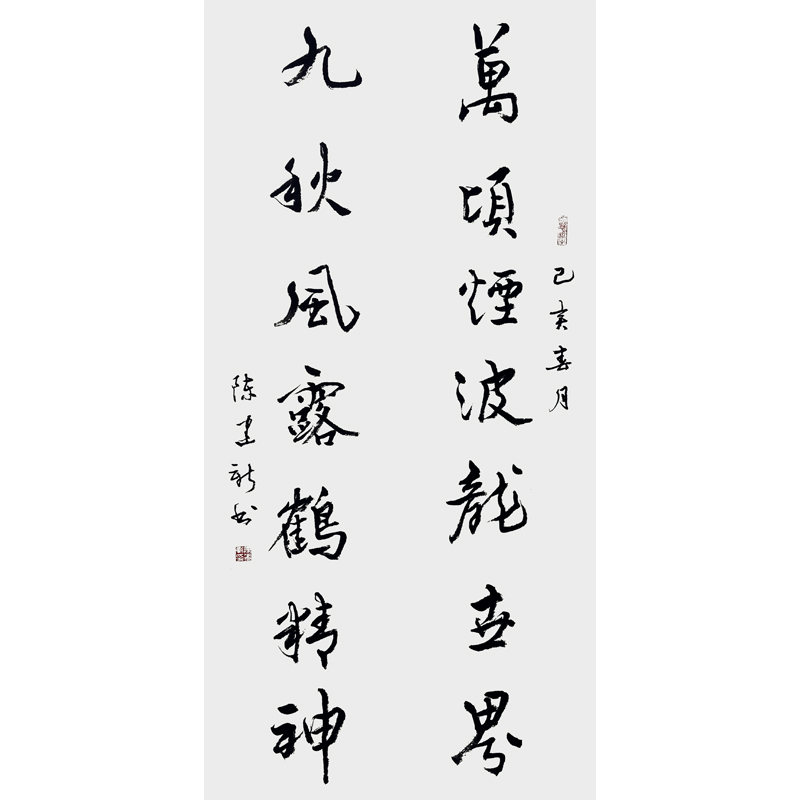 己亥春月
萬頃煙波龍世界
九秋風露鶴精神
陈建新书